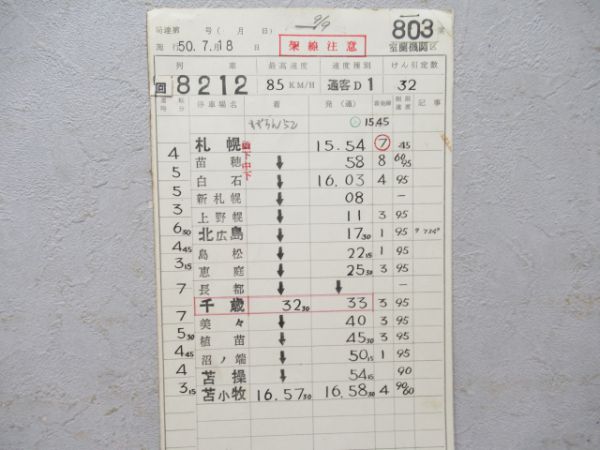 局達第 号(月 日) 9/9 803
施行50.7月18日 架線注意 室蘭機関区
列車 最高速度 速度種別 けん引定数
回 8212 85KM/H 通客D1 32
運転時分 停車場名 着 発(通) 着発線 制限速度 記事
すずらん52 15.45
札幌 15.54 7 45
4 苗穂 ↓ 58 8 60 95
5 白石 ↓ 16.03 4 95
5 新札幌 ↓ 08 –
3 上野幌 ↓ 11 3 95
6 30 北広島 ↓ 17 30 1 95
4 45 島松 ↓ 22 15 1 95
3 15 恵庭 ↓ 25 30 3 95
長都 ↓ ↓ –
7 千歳 32 30 33 3 95
7 美々 ↓ 40 3 95
5 30 植苗 ↓ 45 30 3 95
4 45 沼ノ端 ↓ 50 15 1 95
4 苫操 ↓ 54 15 95
3 15 苫小牧 16.57 30 16.58 30 4 90 60